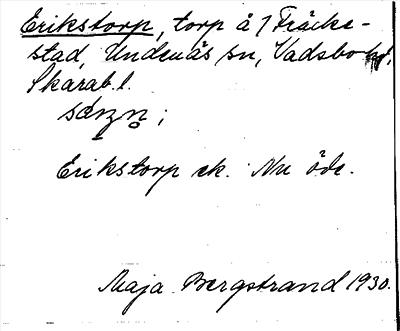 Erikstorp, torp å 1 Fräcke-
stad, Undenäs sn, Vadsbo hd,
Skarab. l.
sǫzn;
Erikstorp ek. Nu öde.
Maja Bergstrand 1930.